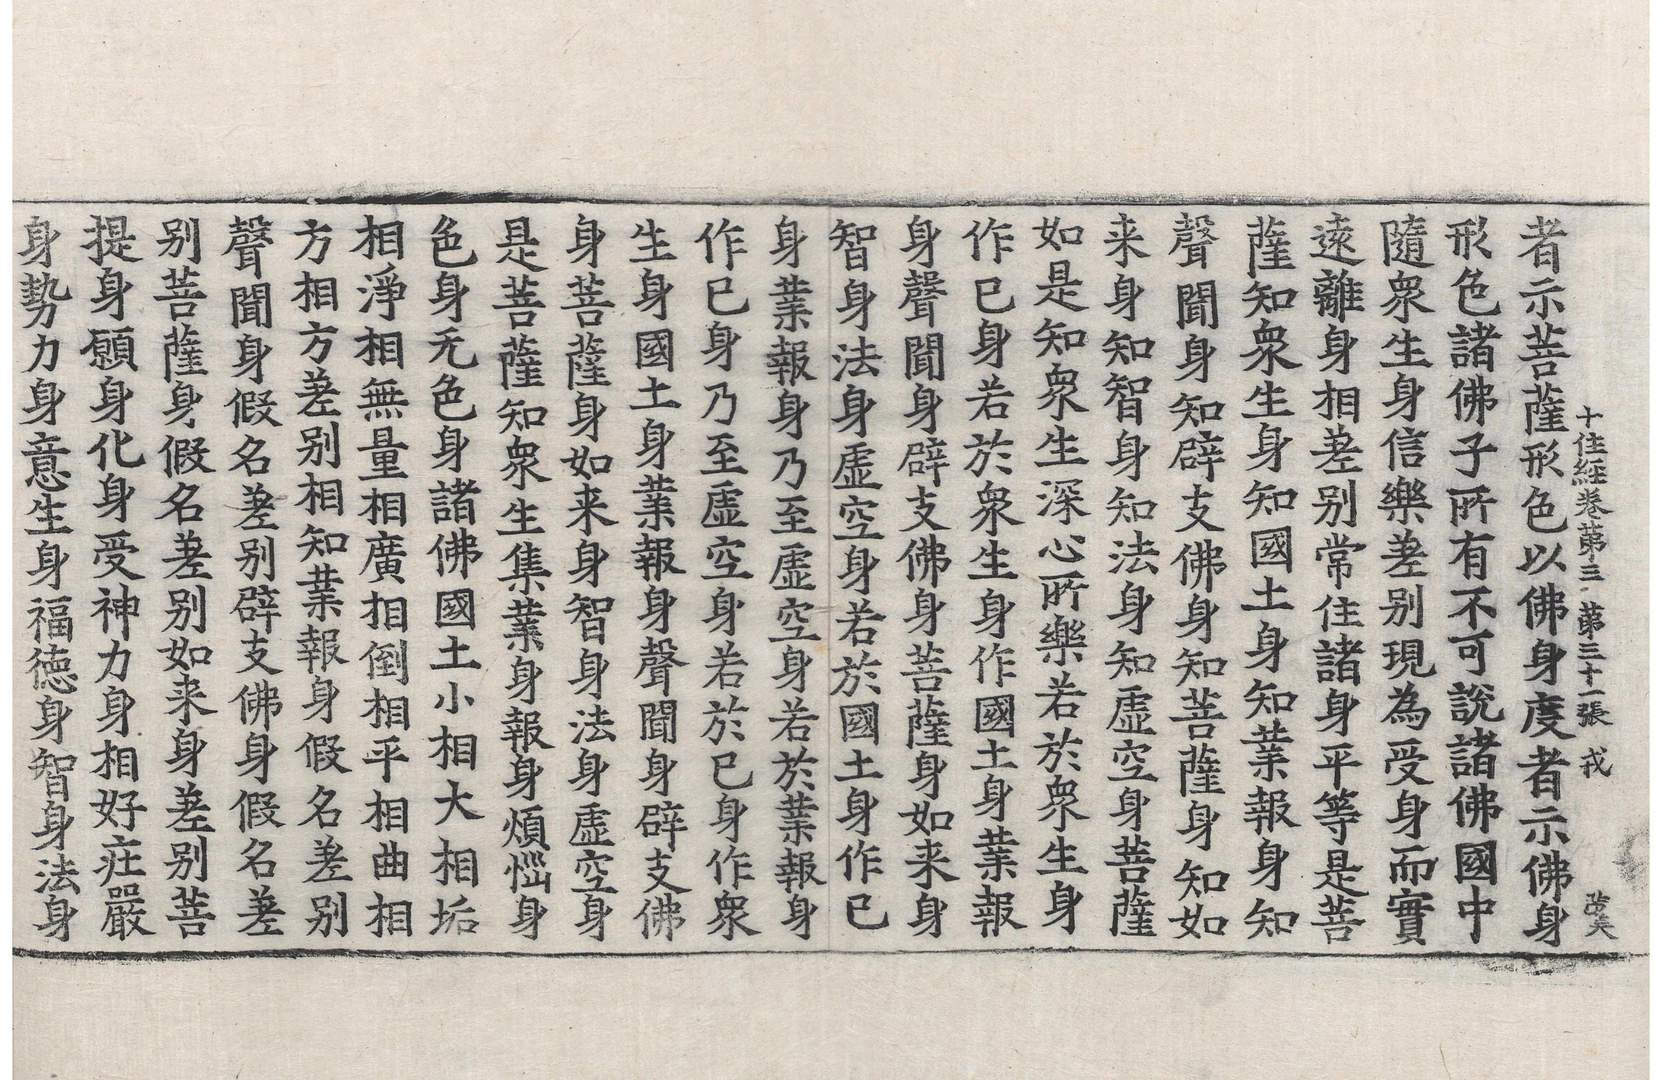 十住経卷苐三 苐三十一張 戎
者示菩薩形色以佛身度者示佛身
形色諸佛子所有不可說諸佛國中
隨衆生身信樂差别現為受身而實
遠離身相差别常住諸身平等是菩
薩知衆生身知國土身知業報身知
聲聞身知辟支佛身知菩薩身知如
来身知智身知法身知虛空身菩薩
如是知衆生深心所樂若於衆生身
作已身若於衆生身作國土身業報
身聲聞身辟支佛身菩薩身如来身
智身法身虛空身若於國土身作已
身業報身乃至虛空身若於業報身
作已身乃至虛空身若於已身作衆
生身國土身業報身聲聞身辟支佛
身菩薩身如来身智身法身虛空身
是菩薩知衆生集業身報身煩惱身
色身无色身諸佛國土小相大相垢
相淨相無量相廣相倒相平相曲相
方相方差别相知業報身假名差别
聲聞身假名差别辟支佛身假名差
别菩薩身假名差别如来身差别菩
提身願身化身受神力身相好莊嚴
身勢力身意生身福徳身智身法身